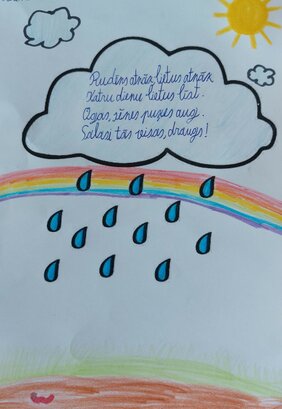 Rudens atnāk, lietus atnāk
Katru dienu lietus līst.
Ogas, sēnes puķes aug.
Salasi tās visas, draugs!